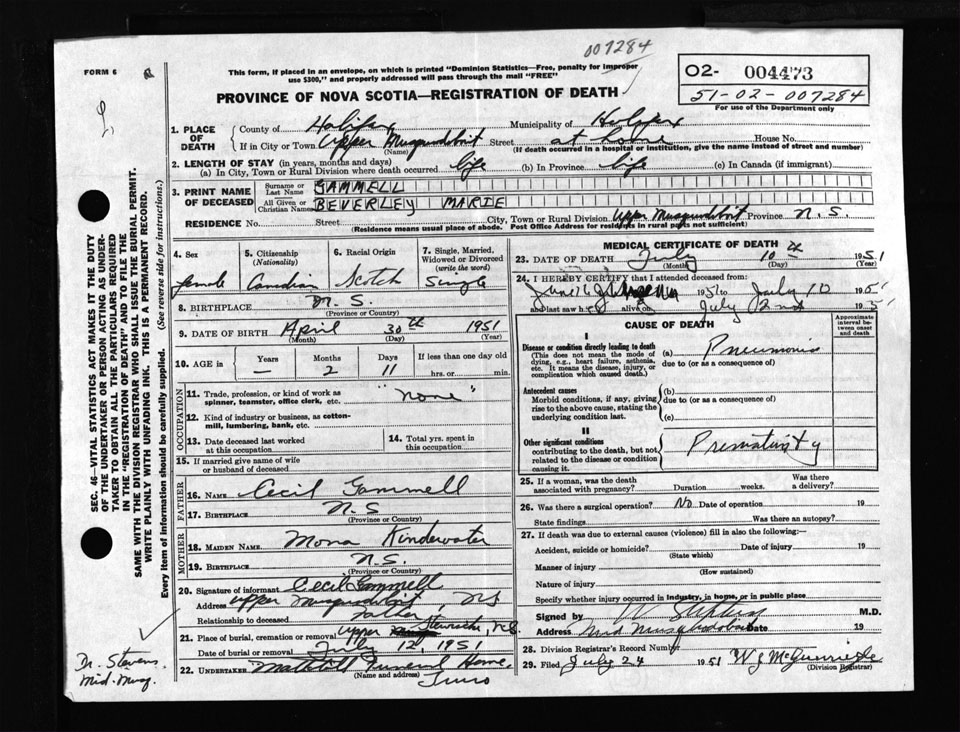 007284
FORM 6
This form, if placed in an envelope, on which is printed "Dominion Statistics—Free, penalty for improper
use $300," and properly addressed will pass through the mail "FREE"
O2- 004473
51-02-007284
For use of the Department only
PROVINCE OF NOVA SCOTIA—REGISTRATION OF DEATH
1. PLACE OF DEATH
County of Halifax Municipality of Halifax
If in City or Town Upper Musquodoboit Street at home House No.
(Name) (If death occurred in a hospital or institution, give the name instead of street and number)
2. LENGTH OF STAY (in years, months and days)
(a) In City, Town or Rural Division where death occurred life (b) In Province life (c) In Canada (if immigrant)
3. PRINT NAME OF DECEASED
Surname or Last Name GAMMELL
All Given or Christian Names BEVERLEY MARIE
RESIDENCE No. Street City, Town or Rural Division Upper Musquodoboit Province N.S.
(Residence means usual place of abode. Post Office Address for residents in rural parts not sufficient)
4. Sex
female
5. Citizenship (Nationality)
Canadian
6. Racial Origin
Scotch
7. Single, Married, Widowed or Divorced (write the word)
Single
8. BIRTHPLACE N. S.
(Province or Country)
9. DATE OF BIRTH April 30th 1951
(Month) (Day) (Year)
10. AGE in Years Months Days If less than one day old
— 2 11 hrs. or min.
OCCUPATION
11. Trade, profession, or kind of work as spinner, teamster, office clerk, etc. "none"
12. Kind of industry or business, as cotton-mill, lumbering, bank, etc.
13. Date deceased last worked at this occupation
14. Total yrs. spent in this occupation
15. If married give name of wife or husband of deceased
FATHER
16. NAME Cecil Gammell
17. BIRTHPLACE N.S
(Province or Country)
MOTHER
18. MAIDEN NAME Mona Kinderwater
19. BIRTHPLACE N.S.
(Province or Country)
20. Signature of informant Cecil Gammell
Address Upper Musquodoboit, NS
Relationship to deceased Father
21. Place of burial, cremation or removal Upper Stewiacke, N.S.
Date of burial or removal July 12, 1951
22. UNDERTAKER Funeral Home.
(Name and address) Truro
MEDICAL CERTIFICATE OF DEATH
23. DATE OF DEATH July 10th 1951
(Month) (Day) (Year)
24. I HEREBY CERTIFY that I attended deceased from
June 1951 to July 10 195
and last saw h alive on July 2nd 195
CAUSE OF DEATH
Approximate interval between onset and death
I
Disease or condition directly leading to death
(This does not mean the mode of dying, e.g., heart failure, asthenia, etc. It means the disease, injury, or complication which caused death.)
(a) Pneumonia
due to (or as a consequence of)
Antecedent causes
Morbid conditions, if any, giving rise to the above cause, stating the underlying condition last.
(b)
due to (or as a consequence of)
(c)
II
Other significant conditions contributing to the death, but not related to the disease or condition causing it.
Prematurity
25. If a woman, was the death associated with pregnancy? Duration weeks. Was there a delivery?
26. Was there a surgical operation? No Date of operation 19
State findings Was there an autopsy?
27. If death was due to external causes (violence) fill in also the following:—
Accident, suicide or homicide? Date of injury 19
(State which)
Manner of injury
(How sustained)
Nature of injury
Specify whether injury occurred in industry, in home, or in public place
Signed by M.D.
Address Mid Musquodoboit Date 19
28. Division Registrar's Record Number
29. Filed July 24 1951
(Division Registrar)
SEC. 46—VITAL STATISTICS ACT MAKES IT THE DUTY
OF THE UNDERTAKER OR PERSON ACTING AS UNDER-
TAKER TO OBTAIN ALL THE PARTICULARS REQUIRED
IN THE "REGISTRATION OF DEATH" AND TO FILE THE
SAME WITH THE DIVISION REGISTRAR WHO SHALL ISSUE THE BURIAL PERMIT.
WRITE PLAINLY WITH UNFADING INK. THIS IS A PERMANENT RECORD.
Every item of information should be carefully supplied. (See reverse side for instructions.)
Dr. Stevens
Mid. Musq.